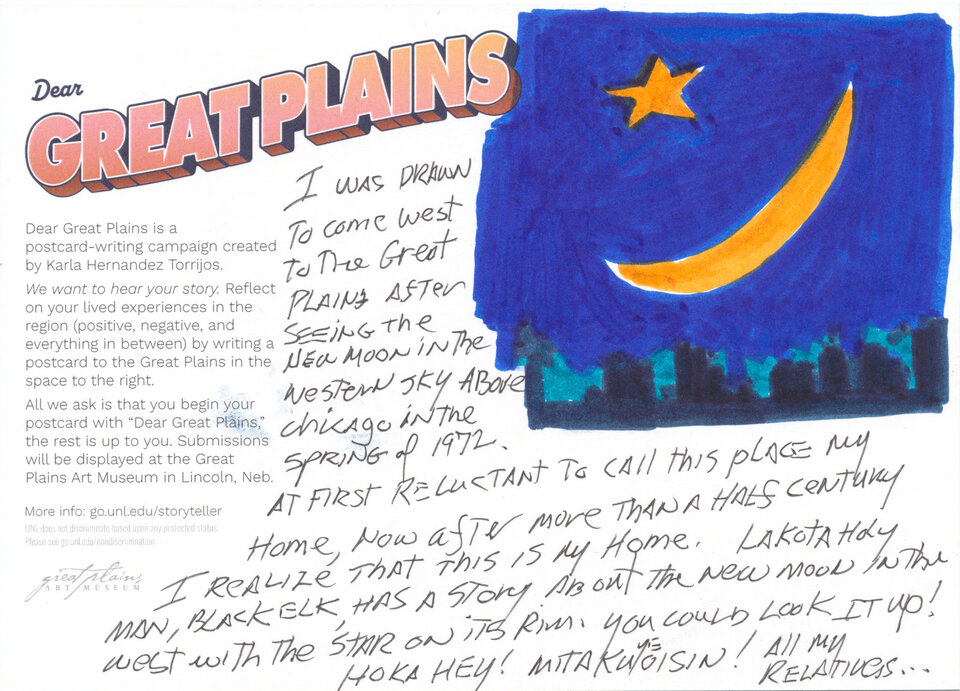 Dear
GREAT PLAINS
Dear Great Plains is a
postcard-writing campaign created
by Karla Hernandez Torrijos.
We want to hear your story. Reflect
on your lived experiences in the
region (positive, negative, and
everything in between) by writing a
postcard to the Great Plains in the
space to the right.
All we ask is that you begin your
postcard with “Dear Great Plains,”
the rest is up to you. Submissions
will be displayed at the Great
Plains Art Museum in Lincoln, Neb.
More info: go.unl.edu/storyteller
UNL does not discriminate based upon any protected status.
Please see go.unl.edu/nondiscrimination.
great plains
ART MUSEUM
I WAS DRAWN
To come west
to The Great
PLAINS AFTER
SEEING the
NEW MOON IN THE
WESTERN SKY ABOVE
Chicago IN THE
SPRING of 1972.
AT FIRST RELUCTANT TO CALL THIS PLACE MY
Home, NOW after MORE THAN A HALF CENTURY
I REALIZE THAT THIS IS MY HOME. LAKOTA HOLY
MAN, BLACK ELK, HAS A STORY About the NEW MOON IN THE
WEST WITH THE STAR ON ITS RIM. YOU COULD LOOK IT UP!
HOKA HEY! MITAKUYE OISIN! All MY
RELATIVES...